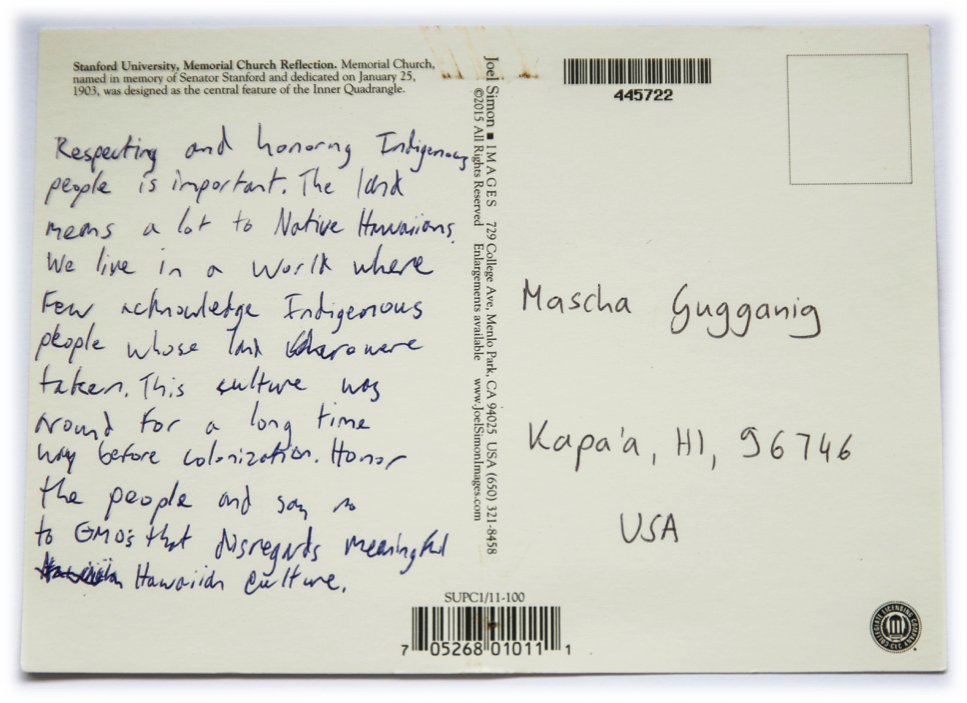 Stanford University, Memorial Church Reflection. Memorial Church,
named in memory of Senator Stanford and dedicated on January 25,
1903, was designed as the central feature of the Inner Quadrangle.
Respecting and honoring Indigenous
people is important. The land
means a lot to Native Hawaiians.
We live in a world where
Few acknowledge Indigenous
people whose land were
taken. This culture was
around for a long time
way before colonization. Honor
the people and say no
to GMO's that disregards meaningful
Hawaiian culture.
Joel Simon ■ IMAGES 729 College Ave, Menlo Park, CA 94025 USA (650) 321-8458
©2015 All Rights Reserved Enlargements available www.JoelSimonImages.com
445722
Mascha Gugganig
Kapa'a, HI, 96746
USA
SUPC1/11-100
7 05268 01011 1
COLLEGIATE LICENSING COMPANY
CLC